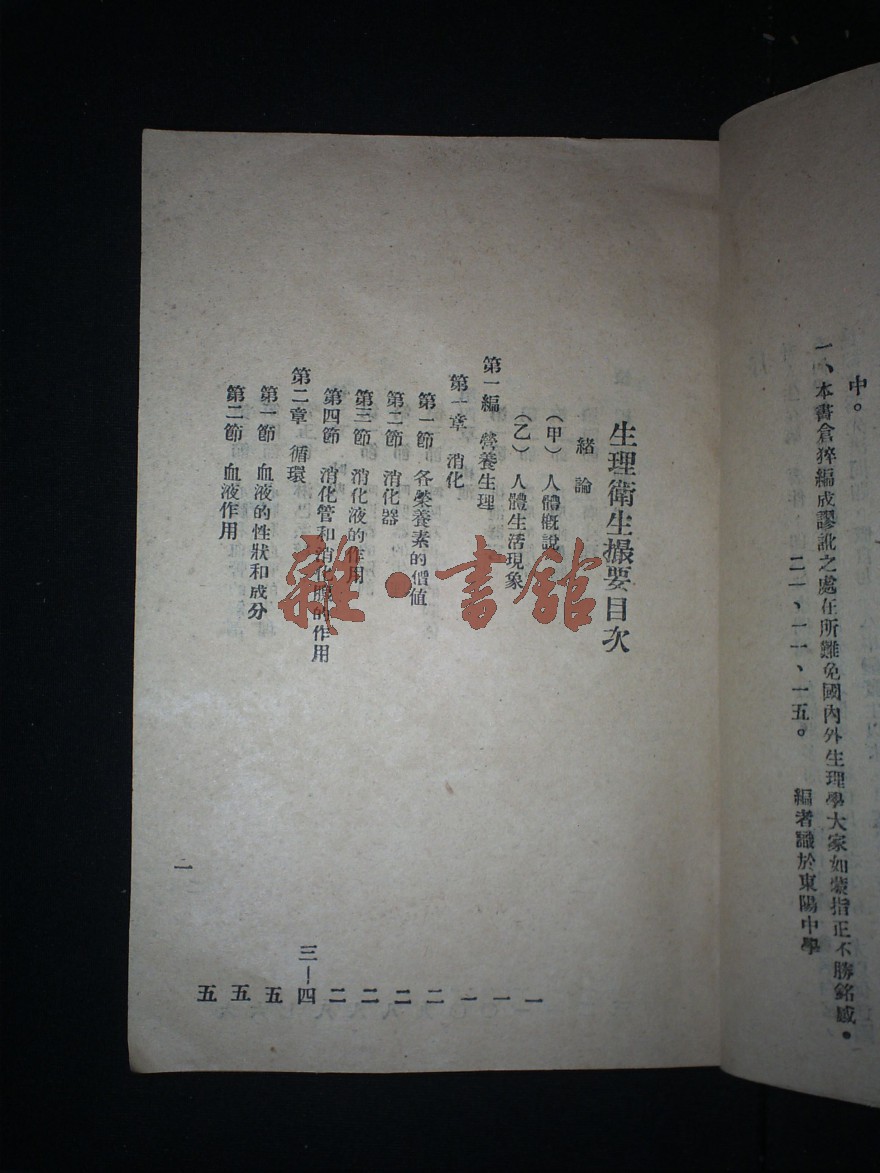 中。
一、本書倉猝編成謬訛之處在所難免國內外生理學大家如蒙指正不勝銘感。
二一、一一、一五。
編者識於東陽中學
生理衛生撮要目次
緒論
(甲)人體概說 一
(乙)人體生活現象 一
第一編 營養生理 一
第一章 消化 二
第一節 各榮養素的價值 二
第二節 消化器 二
第三節 消化液的作用 二
第四節 消化管和消化腺的作用 三—四
第二章 循環 五
第一節 血液的性狀和成分 五
第二節 血液作用 五
一
雜·書館